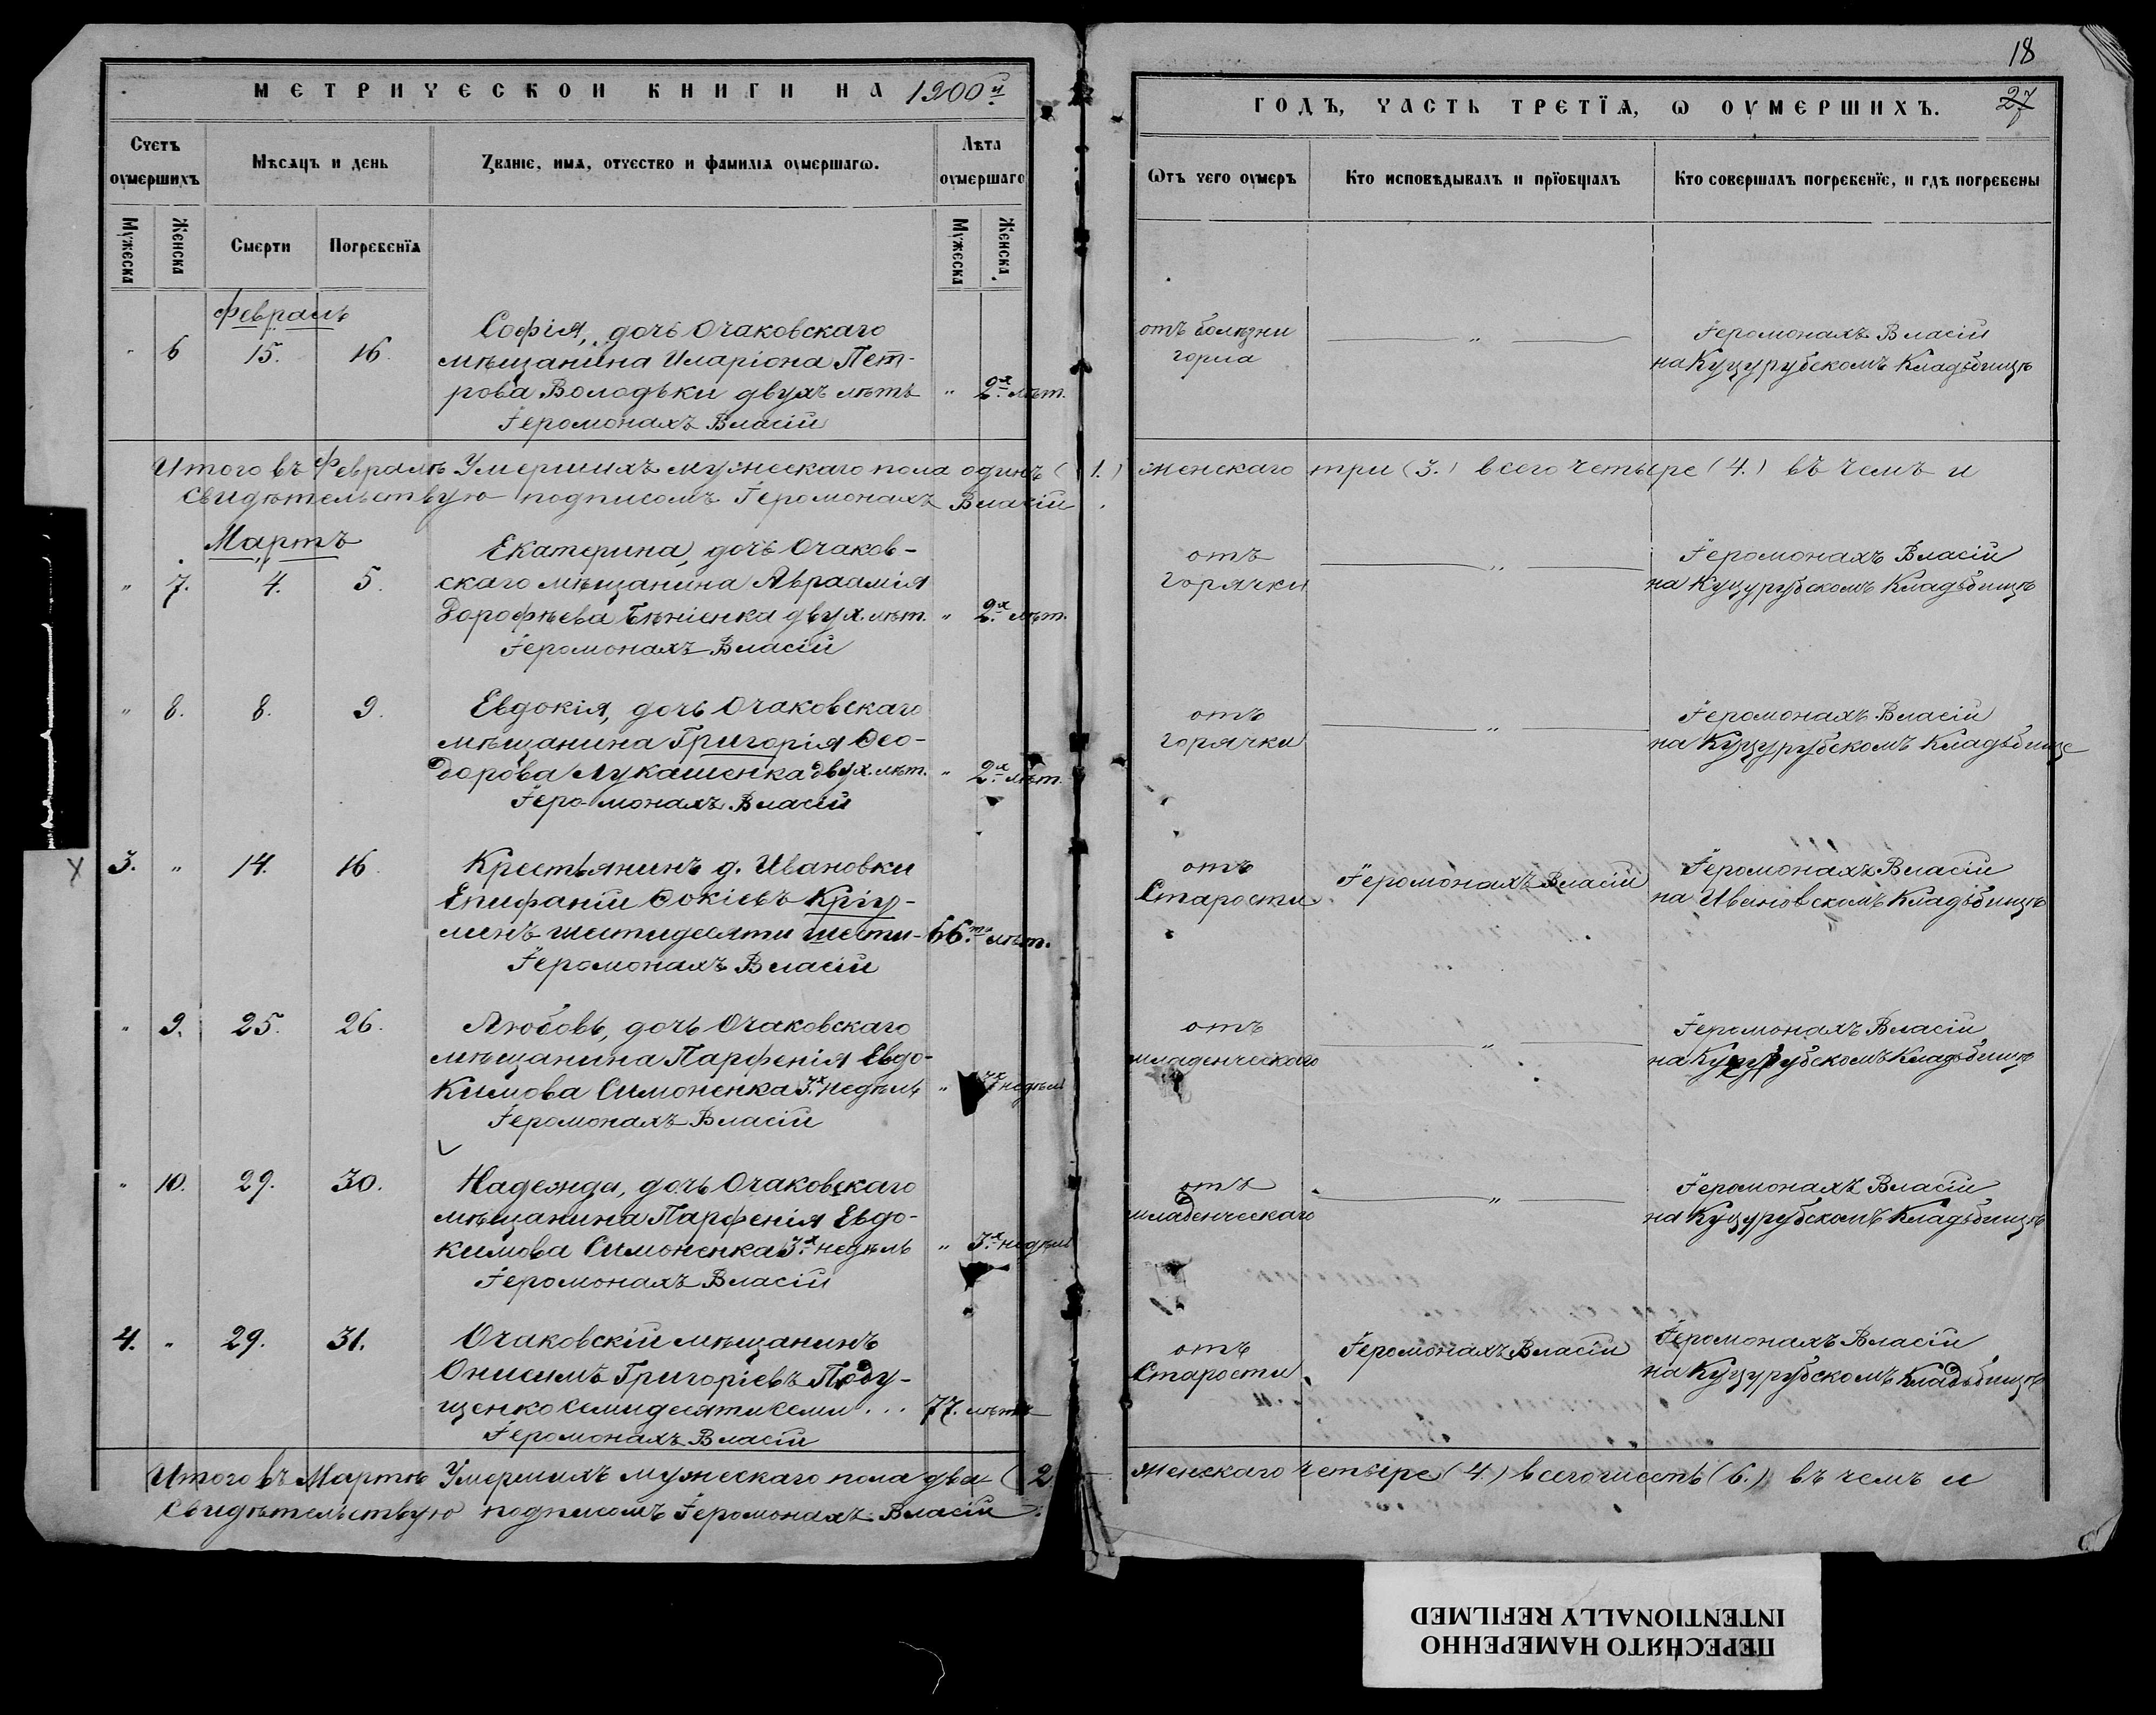 18
МЕТРИЧЕСКОЙ КНИГИ НА 1900й
ГОДЪ, ЧАСТЬ ТРЕТЇѦ, Ѡ ОУМЕРШИХЪ.
27
Счетъ оумершихъ
Мѣсѧцъ и день
Званїе, имѧ, отчество и фамилїѧ оумершагѡ.
Лѣта оумершаго
Ѿтъ чего оумеръ
Кто исповѣдывалъ и прїобщалъ
Кто совершалъ погребенїе, и гдѣ погребены
Мужеска
Женска
Смерти
Погребенїѧ
Мужеска
Женска
Февраль
" 6 15. 16.
Софія, дочь Очаковскаго
мѣщанина Иларіона Пет-
рова Володьки двухъ лѣтъ " 2х лѣт.
Іеромонахъ Власій
отъ болѣзни
горла
"
Іеромонахъ Власій
на Куцурубскомъ Кладьбищѣ
Итого въ Февралѣ Умершихъ мужескаго пола одинъ (1.) женскаго три (3.) всего четыре (4.) въ чемъ и
свидѣтельствую подписомъ Іеромонахъ Власій.
Мартъ
" 7. 4. 5.
Екатерина, дочь Очаков-
скаго мѣщанина Авраамія
Дорофѣева двух. лѣт. " 2х лѣт.
Іеромонахъ Власій
отъ
горячки
"
Іеромонахъ Власій
на Куцурубскомъ Кладьбищѣ
" 8. 8. 9.
Евдокія, дочь Очаковскаго
мѣщанина Григорія Ѳео-
дорова Лукашенка двух. лѣт. " 2х лѣт.
Іеро-монахъ Власій
отъ
горячки
"
Іеромонахъ Власій
на Куцурубскомъ Кладьбище
3. " 14. 16.
Крестьянинъ д. Ивановки
Епифаній Ѳокіевъ Кріу-
линъ шестидесяти шести - 66ти лѣт.
Іеромонахъ Власій
отъ
Старости
Іеромонахъ Власій
Іеромонахъ Власій
на Ивановскомъ Кладьбищѣ
" 9. 25. 26.
Любовь, дочь Очаковскаго
мѣщанина Парфенія Евдо-
кимова Симоненка 3х недѣль " 3х недѣль
Іеромонахъ Власій
отъ
младенческаго
"
Іеромонахъ Власій
на Куцурубскомъ Кладьбищѣ
" 10. 29. 30.
Надежда, дочь Очаковскаго
мѣщанина Парфенія Евдо-
кимова Симоненка 3х недѣль " 3х недѣль
Іеромонахъ Власій
отъ
младенческаго
"
Іеромонахъ Власій
на Куцурубскомъ Кладьбищѣ
4. " 29. 31.
Очаковскій мѣщанинъ
Онисимъ Григоріевъ Поду-
щенко семидесяти семи . . . 77. лѣтъ
Іеромонахъ Власій
отъ
Старости
Іеромонахъ Власій
Іеромонахъ Власій
на Куцурубскомъ Кладьбищѣ
Итого въ Мартѣ Умершихъ мужескаго пола два (2. женскаго четыре (4.) всего шесть (6.) въ чемъ и
свидѣтельствую подписомъ Іеромонахъ Власій.
ПЕРЕСНЯТО НАМЕРЕННО
INTENTIONALLY REFILMED